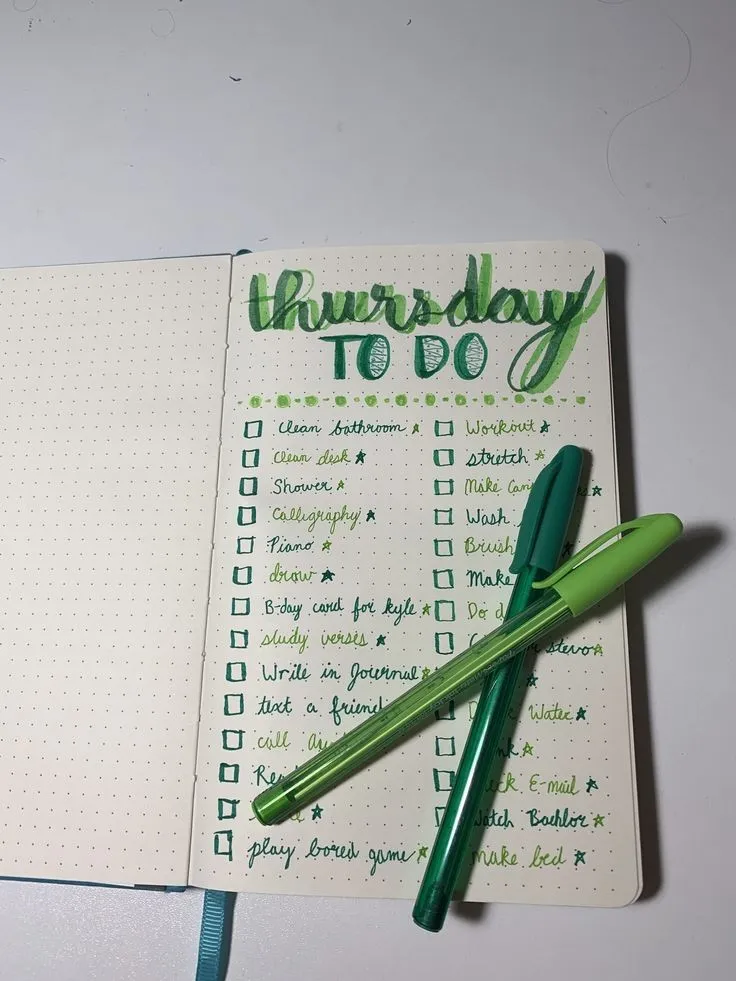 thursday
TO DO
Clean bathroom
Clean desk
Shower
Calligraphy
Piano
draw
B-day card for kyle
study verses
Write in Journal
text a friend
call
play bored game
Workout
stretch
Make
Wash
Brush
Make
Do
Water
E-mail
Watch Bachlor
make bed